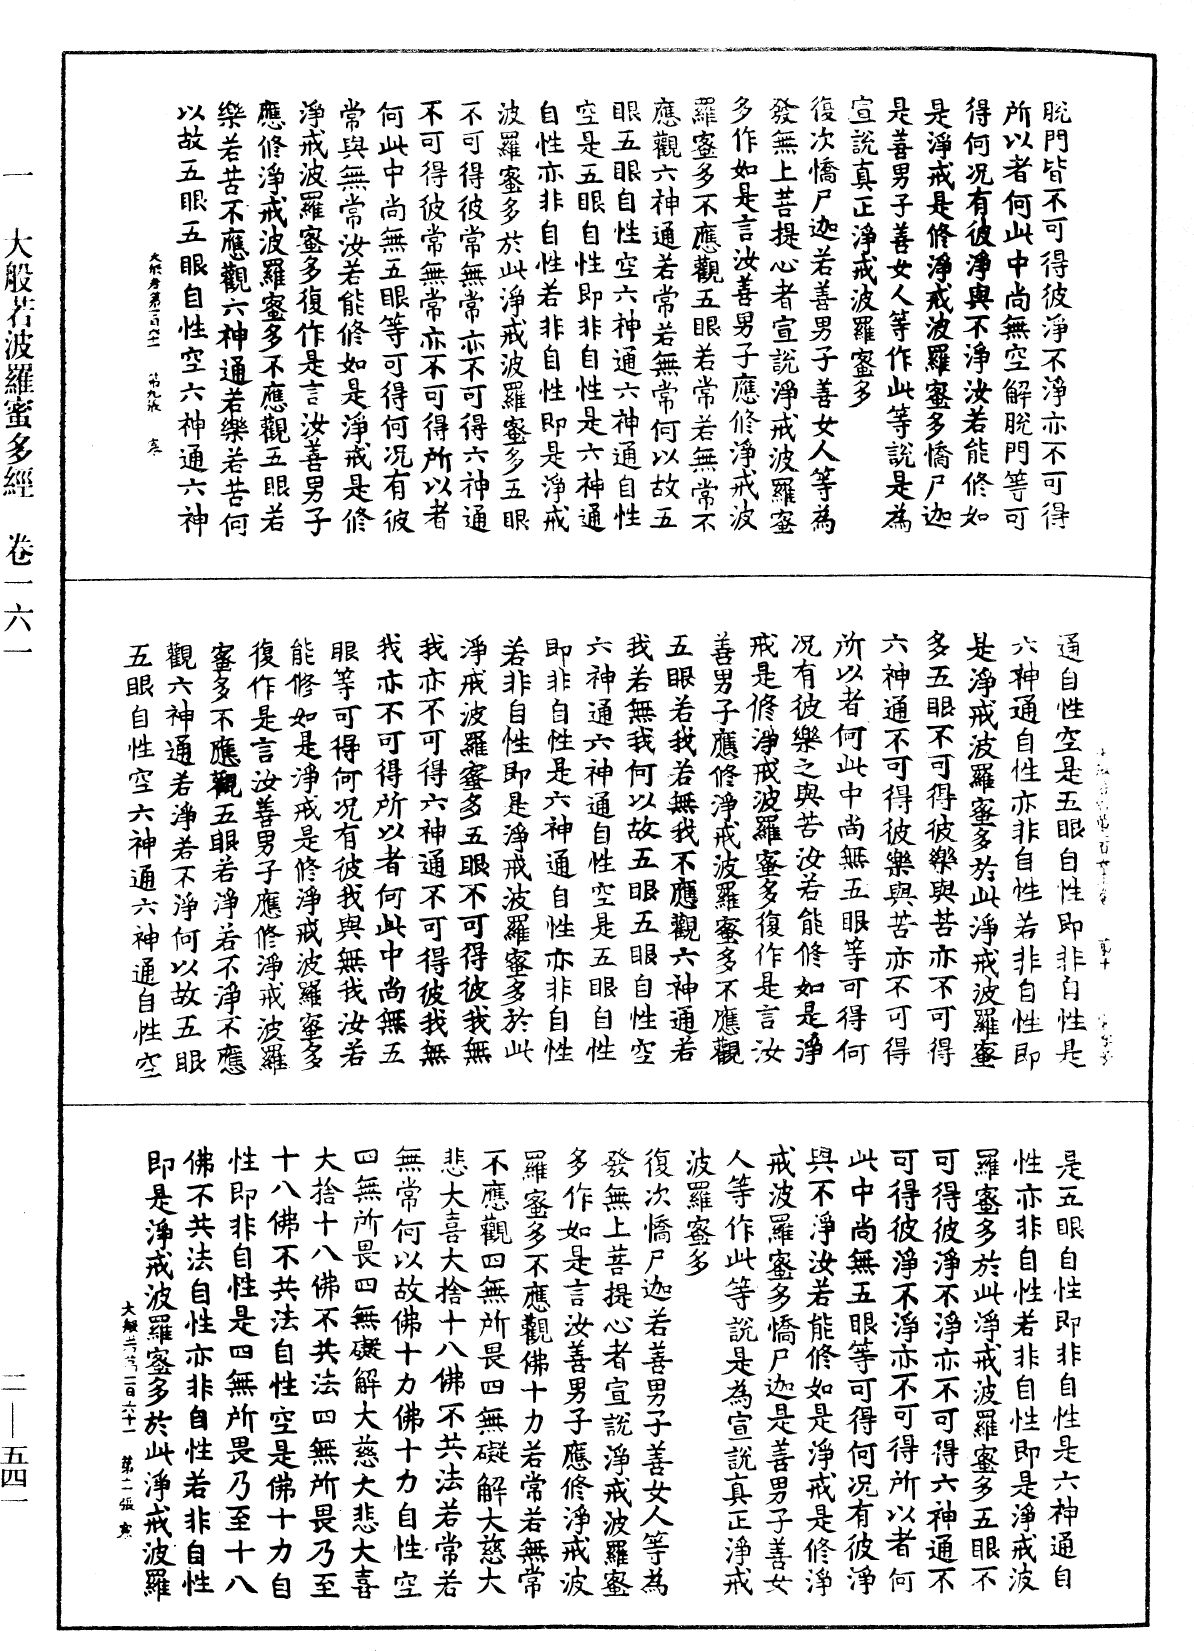 脫門皆不可得彼淨不淨亦不可得
所以者何此中尚無空解脫門等可
得何況有彼淨與不淨汝若能修如
是淨戒是修淨戒波羅蜜多憍尸迦
是善男子善女人等作此等說是為
宣說真正淨戒波羅蜜多
復次憍尸迦若善男子善女人等為
發無上菩提心者宣說淨戒波羅蜜
多作如是言汝善男子應修淨戒波
羅蜜多不應觀五眼若常若無常不
應觀六神通若常若無常何以故五
眼五眼自性空六神通六神通自性
空是五眼自性即非自性是六神通
自性亦非自性若非自性即是淨戒
波羅蜜多於此淨戒波羅蜜多五眼
不可得彼常無常亦不可得六神通
不可得彼常無常亦不可得所以者
何此中尚無五眼等可得何況有彼
常與無常汝若能修如是淨戒是修
淨戒波羅蜜多復作是言汝善男子
應修淨戒波羅蜜多不應觀五眼若
樂若苦不應觀六神通若樂若苦何
以故五眼五眼自性空六神通六神
大般若第一百六十一 第九張 㝛
通自性空是五眼自性即非自性是
六神通自性亦非自性若非自性即
是淨戒波羅蜜多於此淨戒波羅蜜
多五眼不可得彼樂與苦亦不可得
六神通不可得彼樂與苦亦不可得
所以者何此中尚無五眼等可得何
況有彼樂之與苦汝若能修如是淨
戒是修淨戒波羅蜜多復作是言汝
善男子應修淨戒波羅蜜多不應觀
五眼若我若無我不應觀六神通若
我若無我何以故五眼五眼自性空
六神通六神通自性空是五眼自性
即非自性是六神通自性亦非自性
若非自性即是淨戒波羅蜜多於此
淨戒波羅蜜多五眼不可得彼我無
我亦不可得六神通不可得彼我無
我亦不可得所以者何此中尚無五
眼等可得何況有彼我與無我汝若
能修如是淨戒是修淨戒波羅蜜多
復作是言汝善男子應修淨戒波羅
蜜多不應觀五眼若淨若不淨不應
觀六神通若淨若不淨何以故五眼
五眼自性空六神通六神通自性空
是五眼自性即非自性是六神通自
性亦非自性若非自性即是淨戒波
羅蜜多於此淨戒波羅蜜多五眼不
可得彼淨不淨亦不可得六神通不
可得彼淨不淨亦不可得所以者何
此中尚無五眼等可得何況有彼淨
與不淨汝若能修如是淨戒是修淨
戒波羅蜜多憍尸迦是善男子善女
人等作此等說是為宣說真正淨戒
波羅蜜多
復次憍尸迦若善男子善女人等為
發無上菩提心者宣說淨戒波羅蜜
多作如是言汝善男子應修淨戒波
羅蜜多不應觀佛十力若常若無常
不應觀四無所畏四無礙解大慈大
悲大喜大捨十八佛不共法若常若
無常何以故佛十力佛十力自性空
四無所畏四無礙解大慈大悲大喜
大捨十八佛不共法四無所畏乃至
十八佛不共法自性空是佛十力自
性即非自性是四無所畏乃至十八
佛不共法自性亦非自性若非自性
即是淨戒波羅蜜多於此淨戒波羅
大般若第一百六十一 第十一張
一 大般若波羅蜜多經 卷一六一 二—五四一